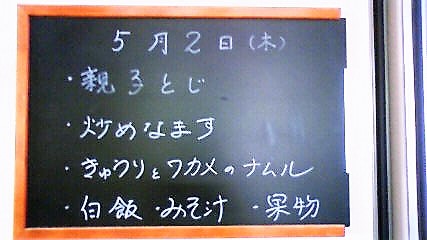 5月2日(木)
・親子とじ
・炒めなます
・きゅうりとワカメのナムル
・白飯 ・みそ汁 ・果物